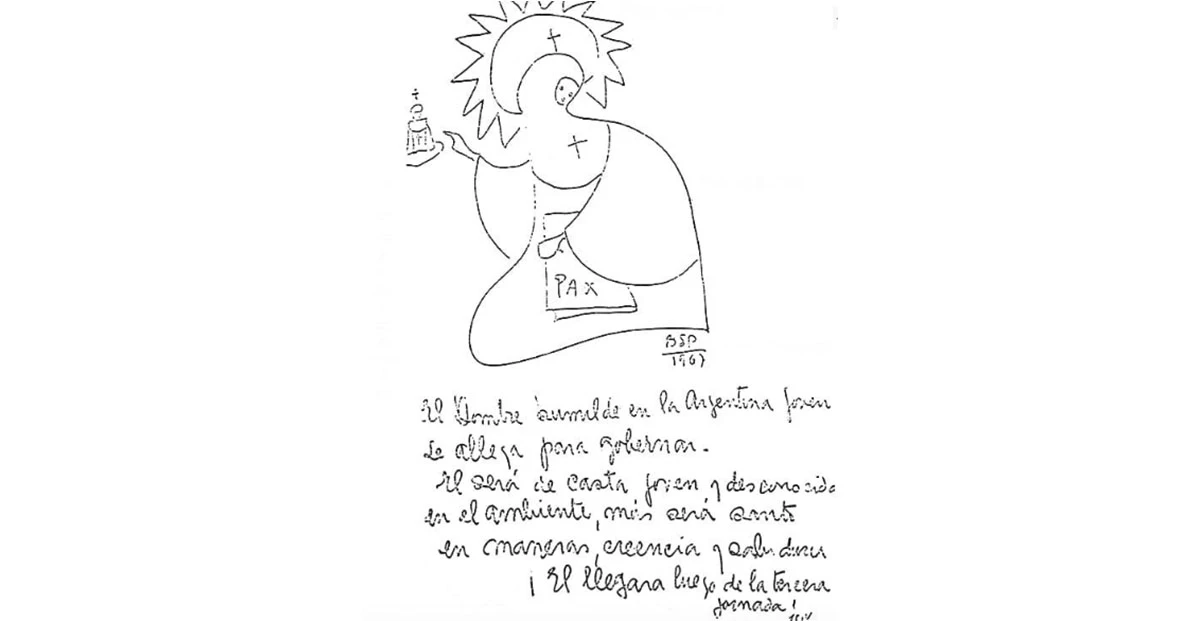 PAX
BSP
1967
El Hombre humilde en la Argentina joven
se allega para gobernar.
El será de casta joven y desconocido
en el ambiente, más será santo
en maneras, creencia y
¡El llegara luego de la tercera
jornada!